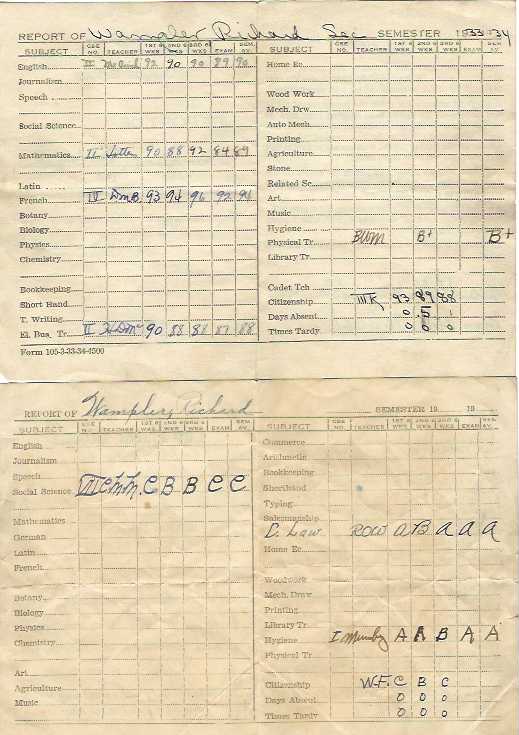 REPORT OF Wampler Richard Sec SEMESTER 1933-34
SUBJECT CSE NO. TEACHER 1ST 6 WKS 2ND 6 WKS 3RD 6 WKS EXAM SEM. AV.
English III 92 90 90 89 90
Journalism
Speech
Social Science
Mathematics II 90 88 92 84 89
Latin
French IV DmB 93 94 96 92 94
Botany
Biology
Physics
Chemistry
Bookkeeping
Short Hand
T. Writing
El. Bus. Tr. II 90 88 88 87 88
Form 105-3-33-34-4500
SUBJECT CSE NO. TEACHER 1ST 6 WKS 2ND 6 WKS 3RD 6 WKS EXAM SEM AV
Home Ec.
Wood Work
Mech. Drw.
Auto Mech.
Printing
Agriculture
Stone
Related Sc.
Art
Music
Hygiene
Physical Tr. BWM B+ B+
Library Tr.
Cadet Tch
Citizenship IIIK 93 89 88
Days Absent 0 .5 1
Times Tardy 0 0 0
REPORT OF Wampler, Richard SEMESTER 19 19
SUBJECT CSE NO. TEACHER 1ST 6 WKS 2ND 6 WKS 3RD 6 WKS EXAM SEM AV.
English
Journalism
Speech
Social Science III C B B C C
Mathematics
German
Latin
French
Botany
Biology
Physics
Chemistry
Art
Agriculture
Music
SUBJECT CSE NO. TEACHER 1ST 6 WKS 2ND 6 WKS 3RD 6 WKS EXAM SEM. AV.
Commerce
Arithmetic
Bookkeeping
Shorthand
Typing
Salesmanship
C. Law ROW A B A A A
Home Ec.
Woodwork
Mech. Draw
Printing
Library Tr.
Hygiene I A A B A A
Physical Tr.
Citizenship W.F. C B C
Days Absent 0 0 0
Times Tardy 0 0 0